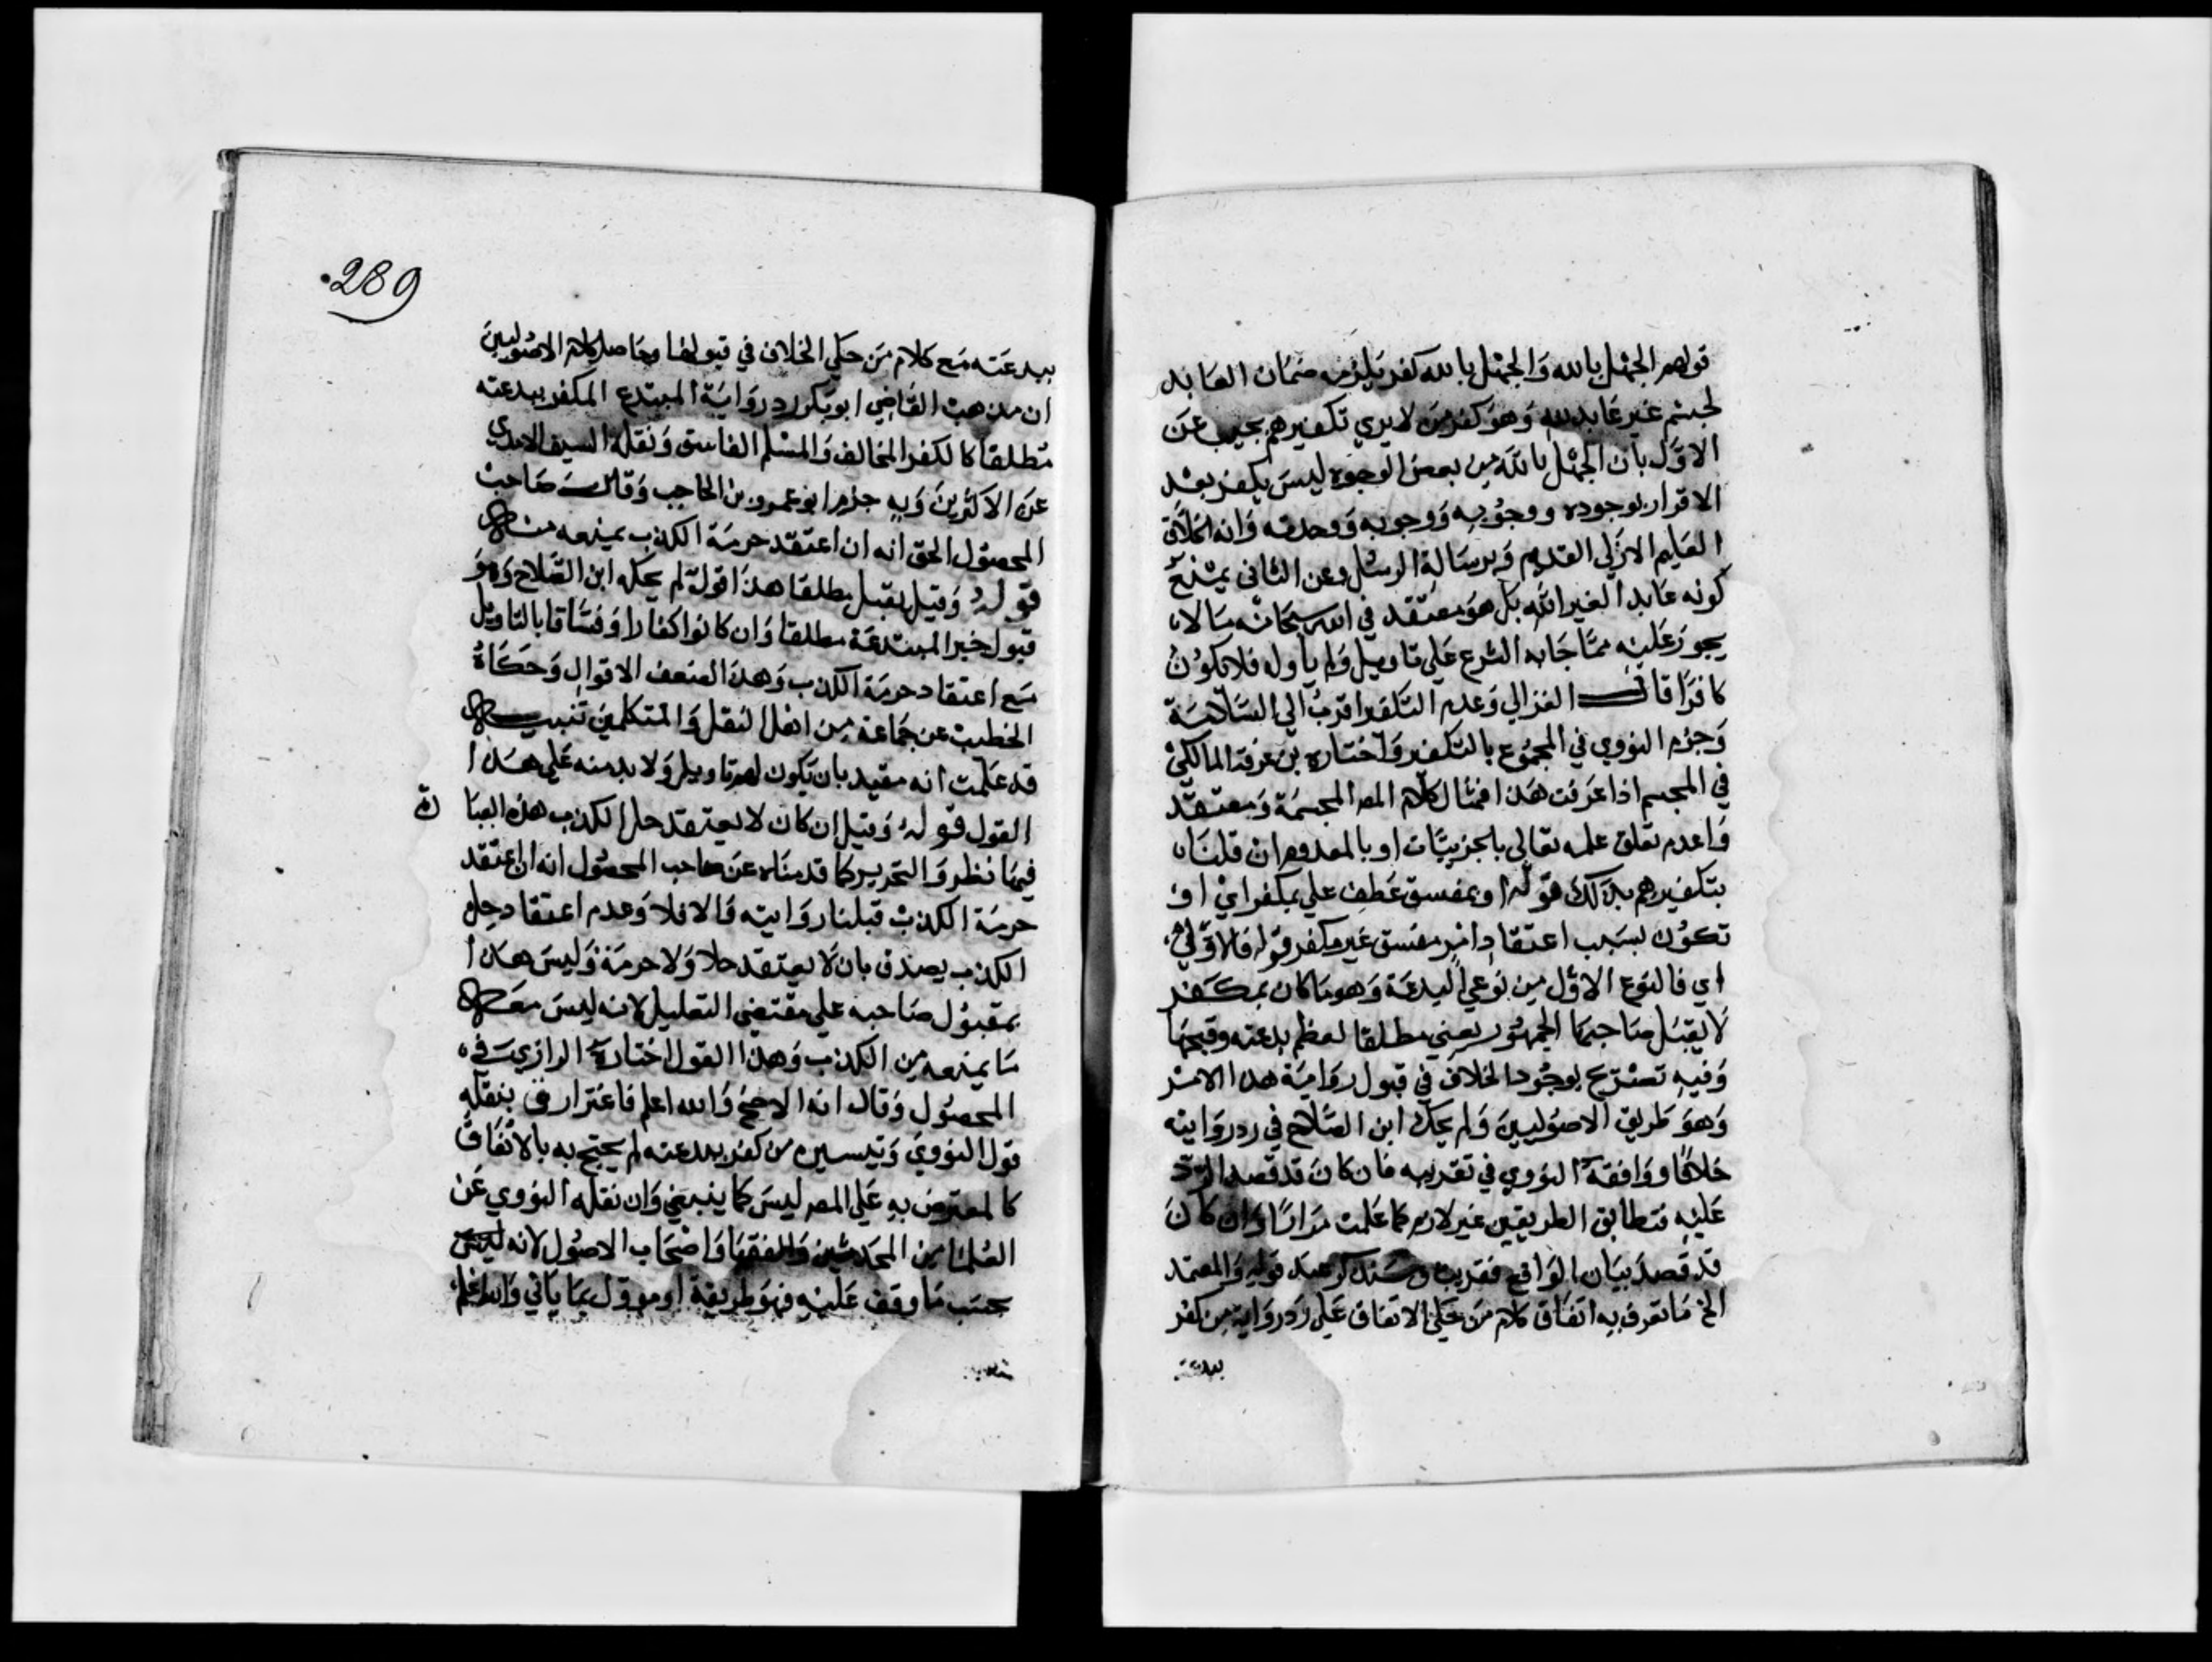 قولهم الجهل بالله والجهل بالله كفر يلزمه ضمان العابد
لجسم غير عابد لله وهو كفر من لا يري تكفيرهم يجيب عن
الاول بان الجهل بالله من بعض الوجوه ليس بكفر بعد
الاقرار بوجوده ووجوبه ووحدته وانه الخلاق
العليم الازلي القديم وبرسالة الرسل وعن الثاني بمنع
كونه عابدا لغير الله بل هو معتقد في الله سبحانه ما لا
يجوز عليه مما جا به الشرع علي تاويل ولم ياوله فلا يكون
كافرا قال الغزالي وعدم التكفير اقرب الي السلامة
وجزم النووي في المجموع بالتكفير واختاره بن عرفة المالكي
في المجسم اذا عرفت هذا فمثال كلام المص المجسمة ومعتقد
وا عدم تعلق علمه تعالي بالجزييات او بالمعدوم ان قلنا
بتكفيرهم بذلك قوله او بمفسق عطف علي بمكفر اي او
تكون بسبب اعتقاد امر مفسق غير مكفر قوله فالاول
اي فالنوع الاول من نوعي البدعة وهو ما كان بمكفر
لا يقبل صاحبها الجمهور يعني مطلقا لعظم بدعته وقبحها
وفيه تصريح بوجود الخلاف في قبول رواية هذا الامر
وهو طريق الاصوليين ولم يحك ابن الصلاح في رد روايته
خلافا ووافقه النووي في تقريبه فان كان قد قصد الرد
عليه فتطابق الطريقين غير لازم كما علمت مرارا وان كان
قد قصد بيان الواقع فقريب وسنذكر عند قوله والمعتمد
الخ ما تعرف به اتفاق كلام من حكي الاتفاق علي رد رواية من كفر
ببدعته
289
ببدعته مع كلام من حكي الخلاف في قبولها وحاصل كلام الاصوليين
ان مذهب القاضي ابو بكر رد رواية المبتدع المكفر ببدعته
مطلقا كالكفر المخالف والمسلم الفاسق ونقله السيف الامدي
عن الاكثرين وبه جزم ابو عمرو بن الحاجب وقال صاحب
المحصول الحق انه ان اعتقد حرمة الكذب بمنعه منه
قوله وقيل يقبل مطلقا هذا قول لم يحكه ابن الصلاح وهو
قبول خبر المبتدعة مطلقا وان كانوا كفارا وفساقا بالتاويل
مع اعتقاد حرمة الكذب وهذا اضعف الاقوال وحكاه
الخطيب عن جماعة من اهل النقل والمتكلمين تنبيه
قد علمت انه مقيد بان يكون لهم تاويل ولا بد منه علي هذا
القول قوله وقيل ان كان لا يعتقد حل الكذب هذه العبا رة
فيها نظر والتحرير كما قدمناه عن صاحب المحصول انه ان اعتقد
حرمة الكذب قبلنا روايته والا فلا وعدم اعتقاد حل
الكذب يصدق بان لا يعتقد حلا ولا حرمة وليس هذا
بمقبول صاحبه علي مقتضي التعليل لانه ليس معه
ما يمنعه من الكذب وهذا القول اختاره الرازي في
المحصول وقال انه الاصح والله اعلم فاعتراض بنقله
قول النووي وتيسيره من كفر ببدعته لم يحتج به بالاتفاق
كالمعترض به علي المص ليس كما ينبغي وان نقله النووي عن
العلما من المحدثين والفقها واصحاب الاصول لانه
بحسب ما وقف عليه فهو طريقة او موول بما ياتي والله اعلم